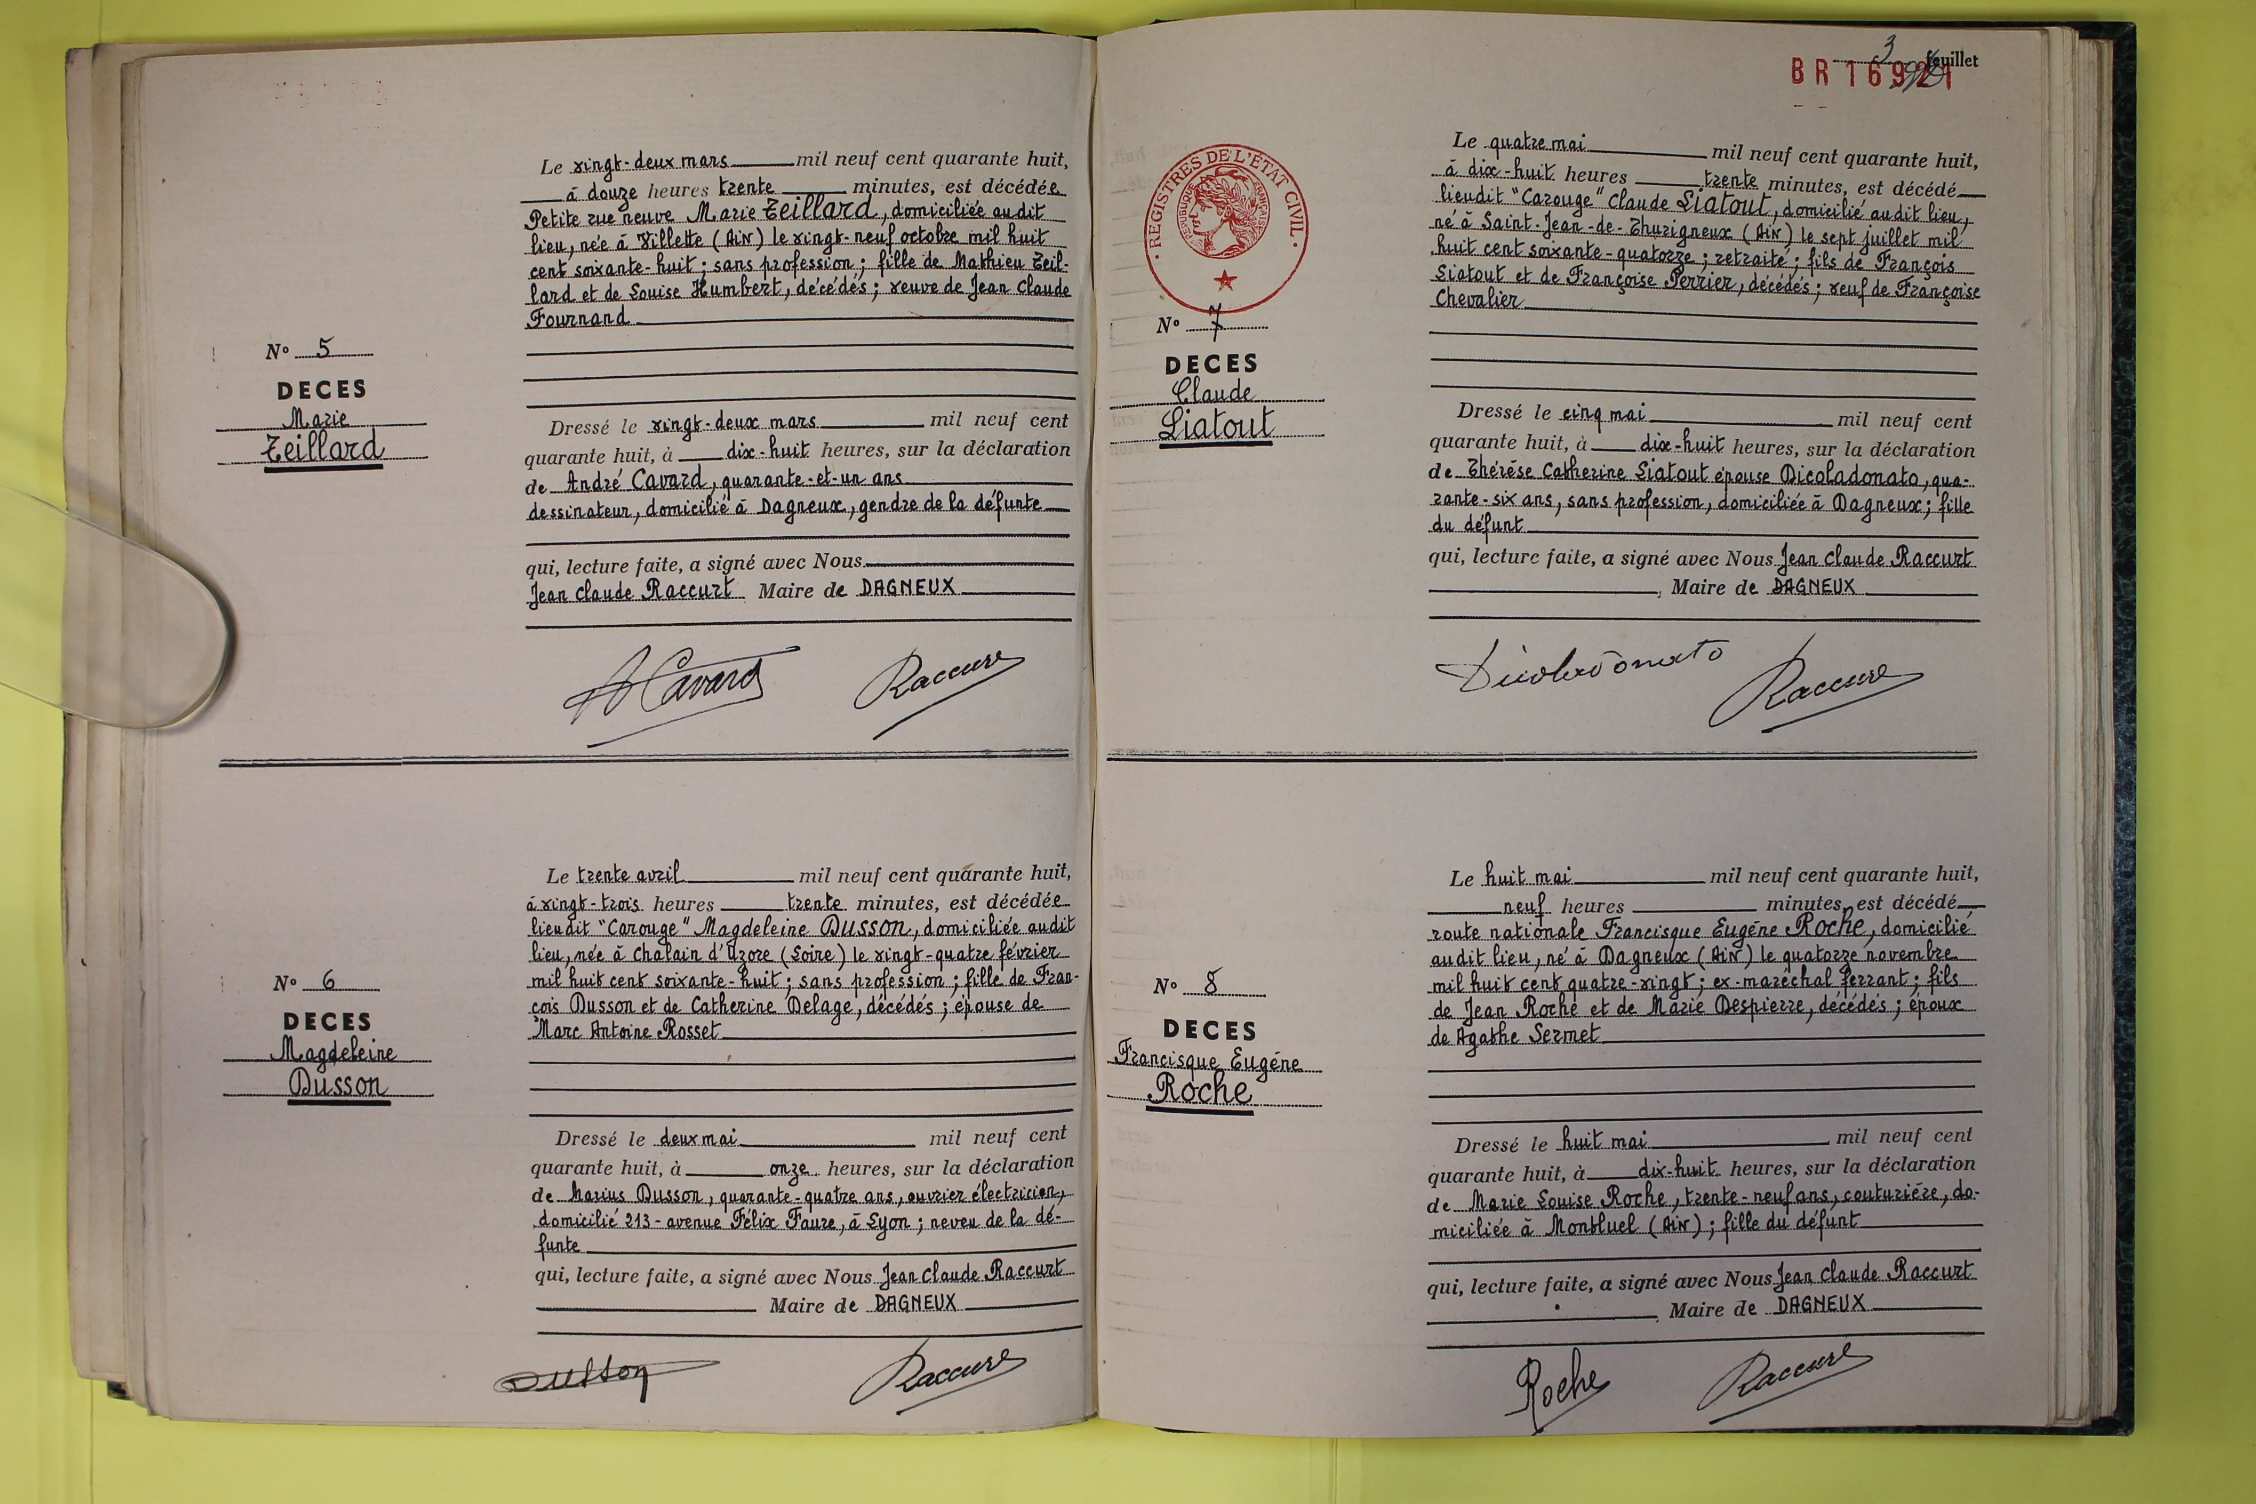 Le vingt-deux mars mil neuf cent quarante huit,
à douze heures trente minutes, est décédée
Petite rue neuve Marie Teillard, domiciliée audit
lieu, née à Villette (Ain) le vingt-neuf octobre mil huit
cent soixante-huit ; sans profession ; fille de Mathieu Teil-
lard et de Louise Humbert, décédés ; veuve de Jean Claude
Fournand
N° 5
DECES
Marie
Teillard
Dressé le vingt-deux mars mil neuf cent
quarante huit, à dix-huit heures, sur la déclaration
de André Cavard, quarante-et-un ans
dessinateur, domicilié à Dagneux, gendre de la défunte
qui, lecture faite, a signé avec Nous
Jean Claude Raccurt Maire de DAGNEUX
A Cavard Raccurt
Le trente avril mil neuf cent quarante huit,
à vingt-trois heures trente minutes, est décédée
lieudit "Carouge" Magdeleine Dusson, domiciliée audit
lieu, née à Chalain d'Uzore (Loire) le vingt-quatre février
mil huit cent soixante-huit ; sans profession ; fille de Fran-
çois Dusson et de Catherine Delage, décédés ; épouse de
Marc Antoine Rosset
N° 6
DECES
Magdeleine
Dusson
Dressé le deux mai mil neuf cent
quarante huit, à onze heures, sur la déclaration
de Marius Dusson, quarante-quatre ans, ouvrier électricien,
domicilié 213 - avenue Félix Faure, à Lyon ; neveu de la dé-
funte
qui, lecture faite, a signé avec Nous Jean Claude Raccurt
Maire de DAGNEUX
Dusson Raccurt
3 feuillet
BR 16921
Le quatre mai mil neuf cent quarante huit,
à dix-huit heures trente minutes, est décédé
lieudit "Carouge" Claude Liatout, domicilié audit lieu,
né à Saint-Jean-de-Thurigneux (Ain) le sept juillet mil
huit cent soixante-quatorze ; retraité ; fils de François
Liatout et de Françoise Perrier, décédés ; veuf de Françoise
Chevalier
REGISTRES DE L'ÉTAT CIVIL
REPUBLIQUE FRANÇAISE
N° 7
DECES
Claude
Liatout
Dressé le cinq mai mil neuf cent
quarante huit, à dix-huit heures, sur la déclaration
de Thérèse Catherine Liatout épouse Dicoladonato, qua-
rante-six ans, sans profession, domiciliée à Dagneux ; fille
du défunt
qui, lecture faite, a signé avec Nous Jean Claude Raccurt
, Maire de DAGNEUX
Dicoladonato Raccurt
Le huit mai mil neuf cent quarante huit,
neuf heures minutes, est décédé
route nationale Francisque Eugène Roche, domicilié
audit lieu, né à Dagneux (Ain) le quatorze novembre
mil huit cent quatre-vingt ; ex-maréchal ferrant ; fils
de Jean Roche et de Marie Despierre, décédés ; époux
de Agathe Sermet
N° 8
DECES
Francisque Eugène
Roche
Dressé le huit mai mil neuf cent
quarante huit, à dix-huit heures, sur la déclaration
de Marie Louise Roche, trente-neuf ans, couturière, do-
miciliée à Montluel (Ain) ; fille du défunt
qui, lecture faite, a signé avec Nous Jean Claude Raccurt
, Maire de DAGNEUX
Roche Raccurt